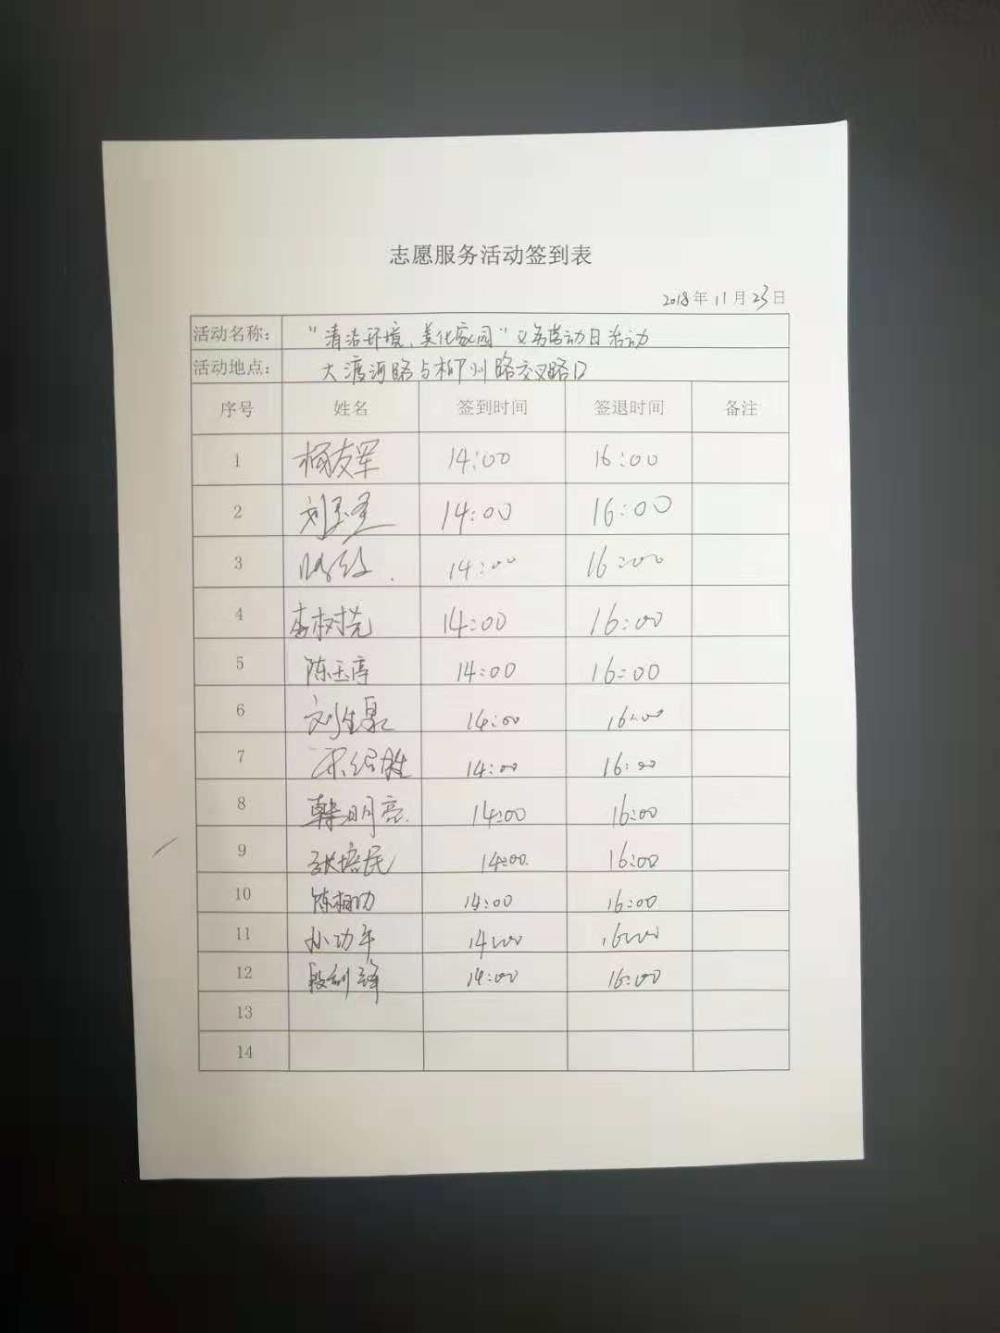 志愿服务活动签到表
2018年11月23日
活动名称: “清洁环境、美化家园”义务劳动日活动
活动地点: 大渡河路与柳州路交叉路口
序号 姓名 签到时间 签退时间 备注
1 杨友军 14:00 16:00
2 14:00 16:00
3 14:00 16:00
4 李树尧 14:00 16:00
5 陈玉亭 14:00 16:00
6 刘生泉 14:00 16:00
7 14:00 16:00
8 韩明亮 14:00 16:00
9 张培民 14:00 16:00
10 14:00 16:00
11 孙功平 14:00 16:00
12 14:00 16:00
13
14